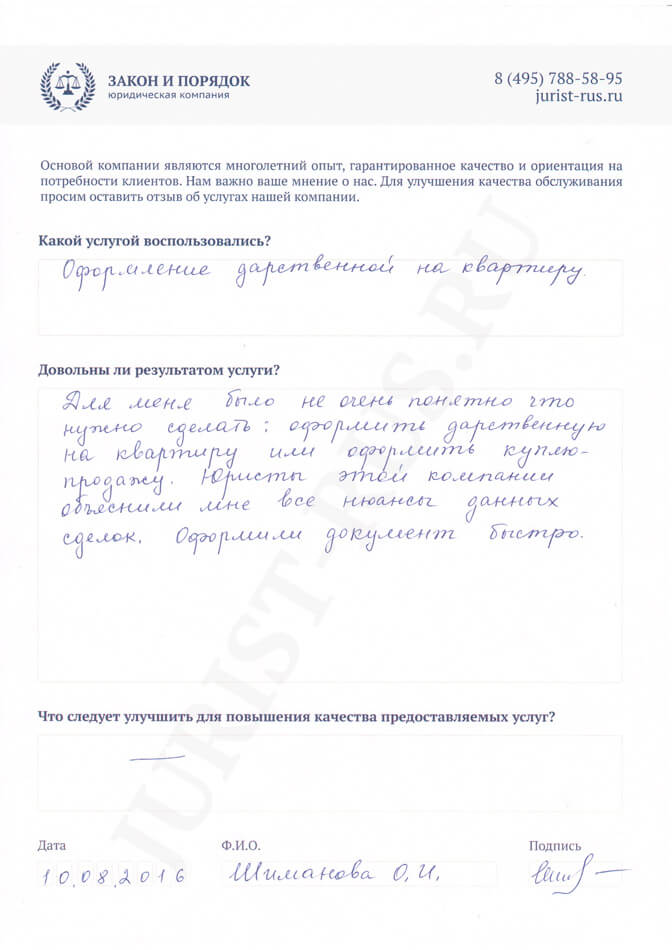 ЗАКОН И ПОРЯДОК
юридическая компания
8 (495) 788-58-95
jurist-rus.ru
Основой компании являются многолетний опыт, гарантированное качество и ориентация на
потребности клиентов. Нам важно ваше мнение о нас. Для улучшения качества обслуживания
просим оставить отзыв об услугах нашей компании.
Какой услугой воспользовались?
Оформление дарственной на квартиру.
Довольны ли результатом услуги?
Для меня было не очень понятно что
нужно сделать: оформить дарственную
на квартиру или оформить куплю-
продажу. Юристы этой компании
объяснили мне все нюансы данных
сделок. Оформили документ быстро.
Что следует улучшить для повышения качества предоставляемых услуг?
—
Дата
Ф.И.О.
Подпись
10.08.2016
Шиманова О.И.
JURIST-RUS.RU